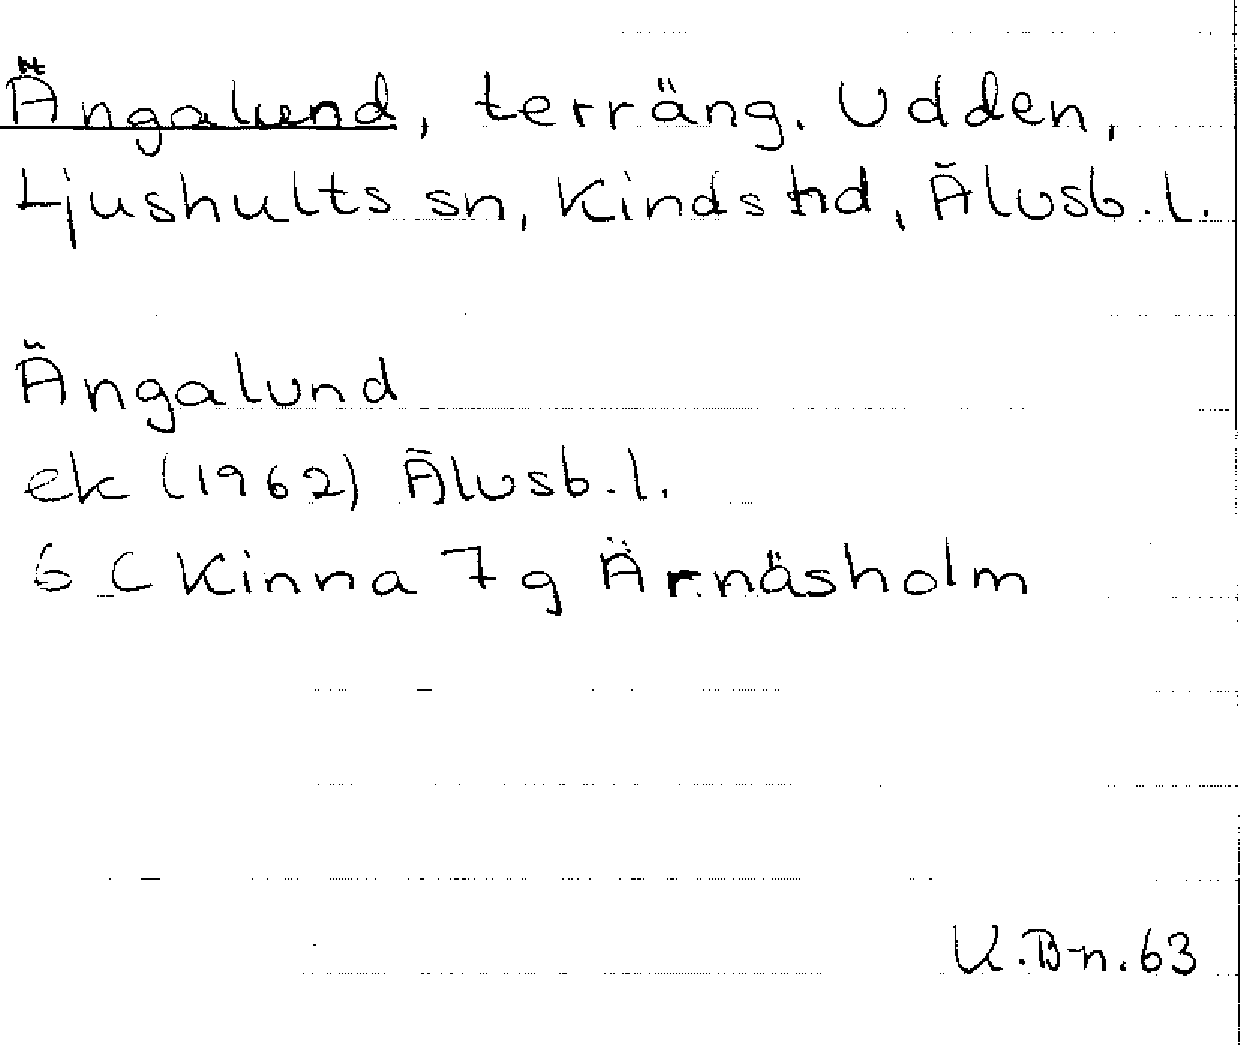 Ängalund, terräng. Udden,
Ljushults sn, Kinds hd, Älvsb. l.
Ängalund
ek (1962) Älvsb. l.
6 C Kinna 7 g Ärnäsholm
K. B-n. 63